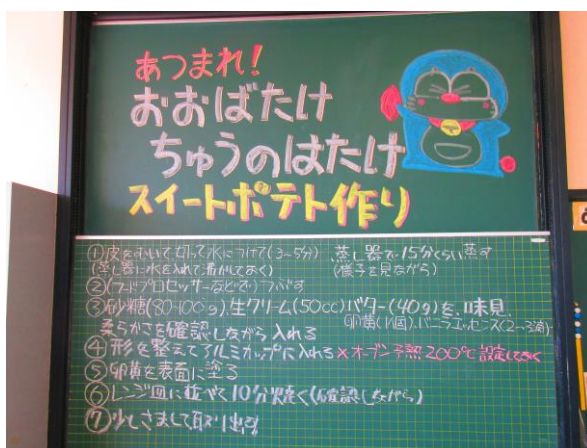 あつまれ!
おおばたけ
ちゅうのはたけ
スイートポテト作り
①皮をむいて、切って水につけて(3~5分)、蒸し器で15分くらい蒸す
(蒸し器に水を入れて沸かしておく) (様子を見ながら)
②(フードプロセッサーなどで)つぶす
③砂糖(80~100g)、生クリーム(50cc)バター(40g)を、味見、
卵黄(1個)、バニラエッセンス(2~3滴)
柔らかさを確認しながら入れる
④形を整えてアルミカップに入れる ×オーブン予熱200℃設定しておく
⑤卵黄を表面に塗る
⑥レンジ皿に並べて10分焼く(確認しながら)
⑦少しさまして取り出す